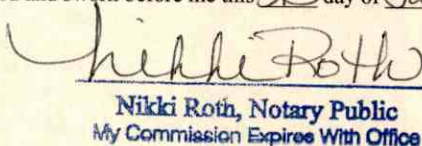 before me this day of
Nikki Roth
Nikki Roth, Notary Public
My Commission Expires With Office